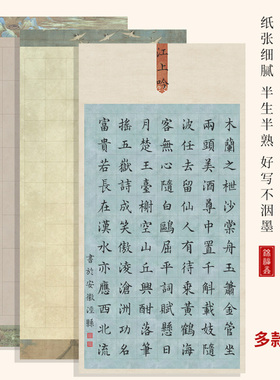 纸张细腻 半生半熟 好写不洇墨
多款
江上吟
木蘭之枻沙棠舟玉簫金管坐
兩頭美酒樽中置千斛載妓隨
波任去留仙人有待乘黃鶴海
客無心隨白鷗屈平詞賦懸日
月楚王臺榭空山丘興酣落筆
搖五嶽詩成笑傲凌滄洲功名
富貴若長在漢水亦應西北流
書於安徽涇縣